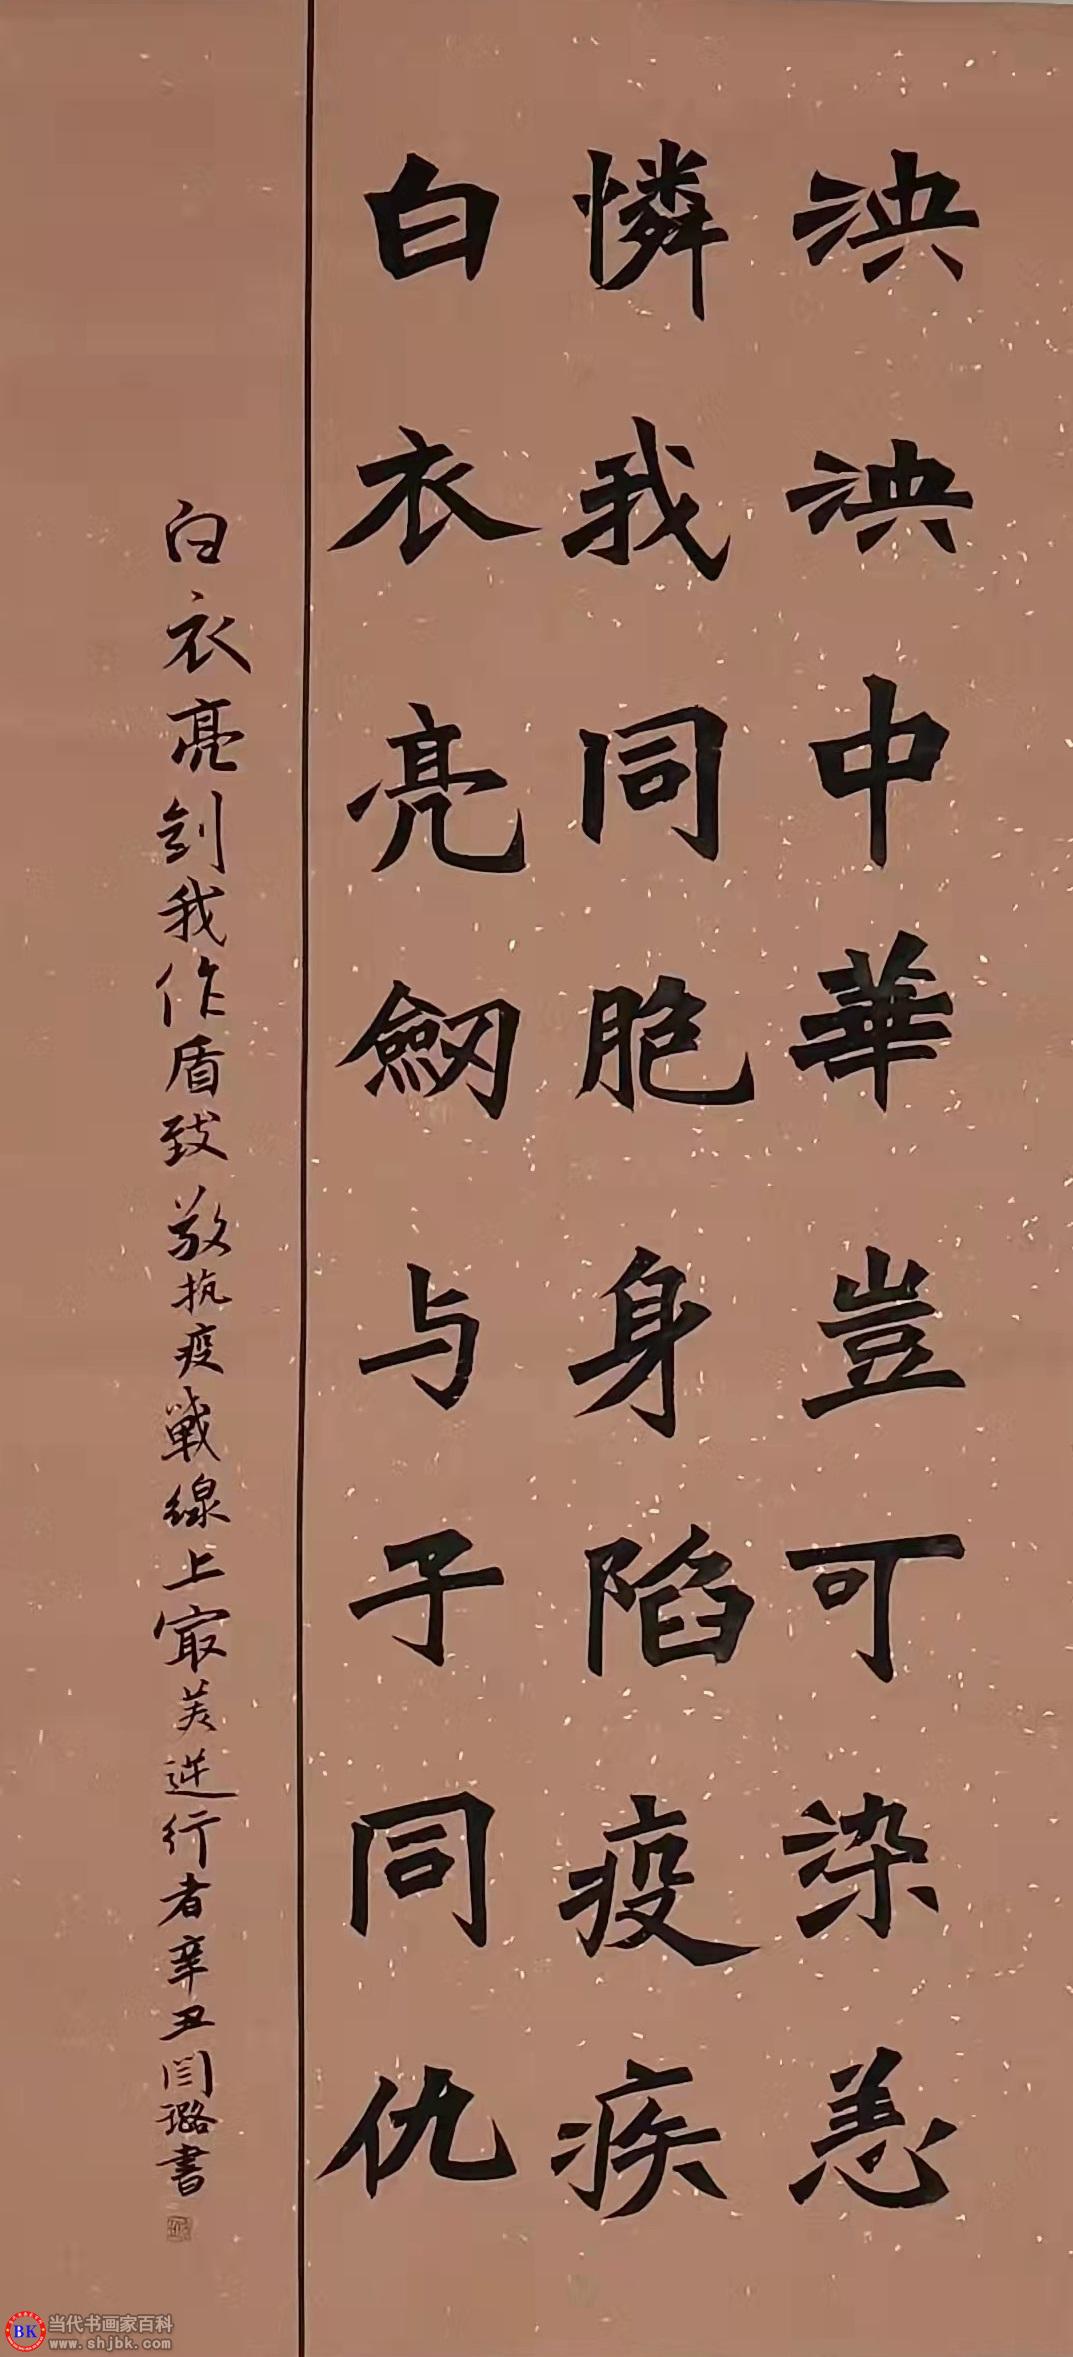 泱泱中華豈可染恙
憐我同胞身陷疫疾
白衣亮劒与子同仇
白衣亮剑我作盾致敬执疫戰線上最美逆行者辛丑闫璐書
BK
当代书画家百科
www.shjbk.com